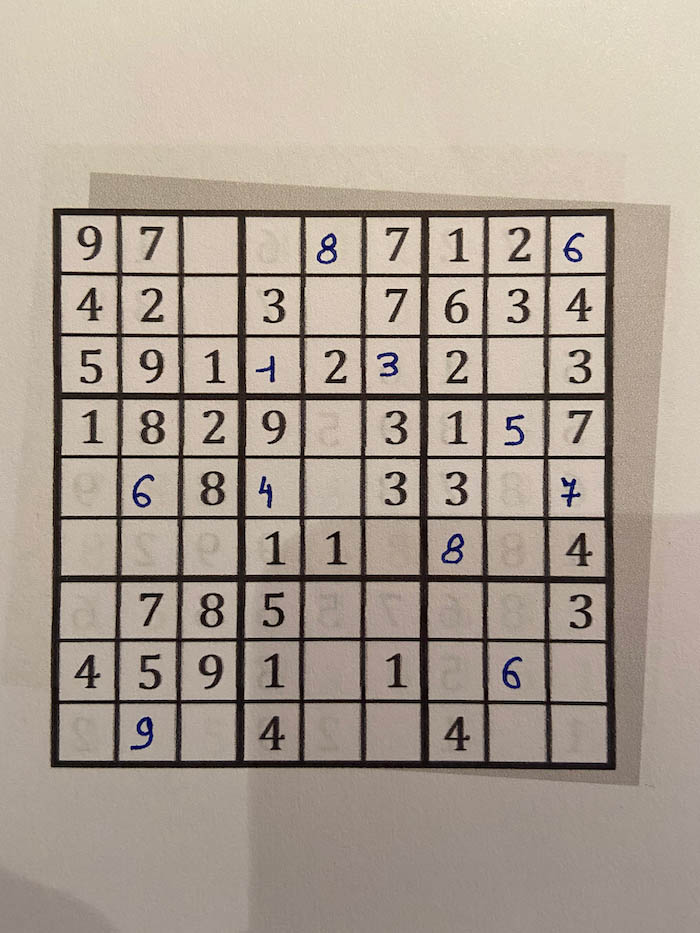 9 7 8 7 1 2 6
4 2 3 7 6 3 4
5 9 1 1 2 3 2 3
1 8 2 9 3 1 5 7
6 8 4 3 3 7
1 1 8 4
7 8 5 3
4 5 9 1 1 6
9 4 4